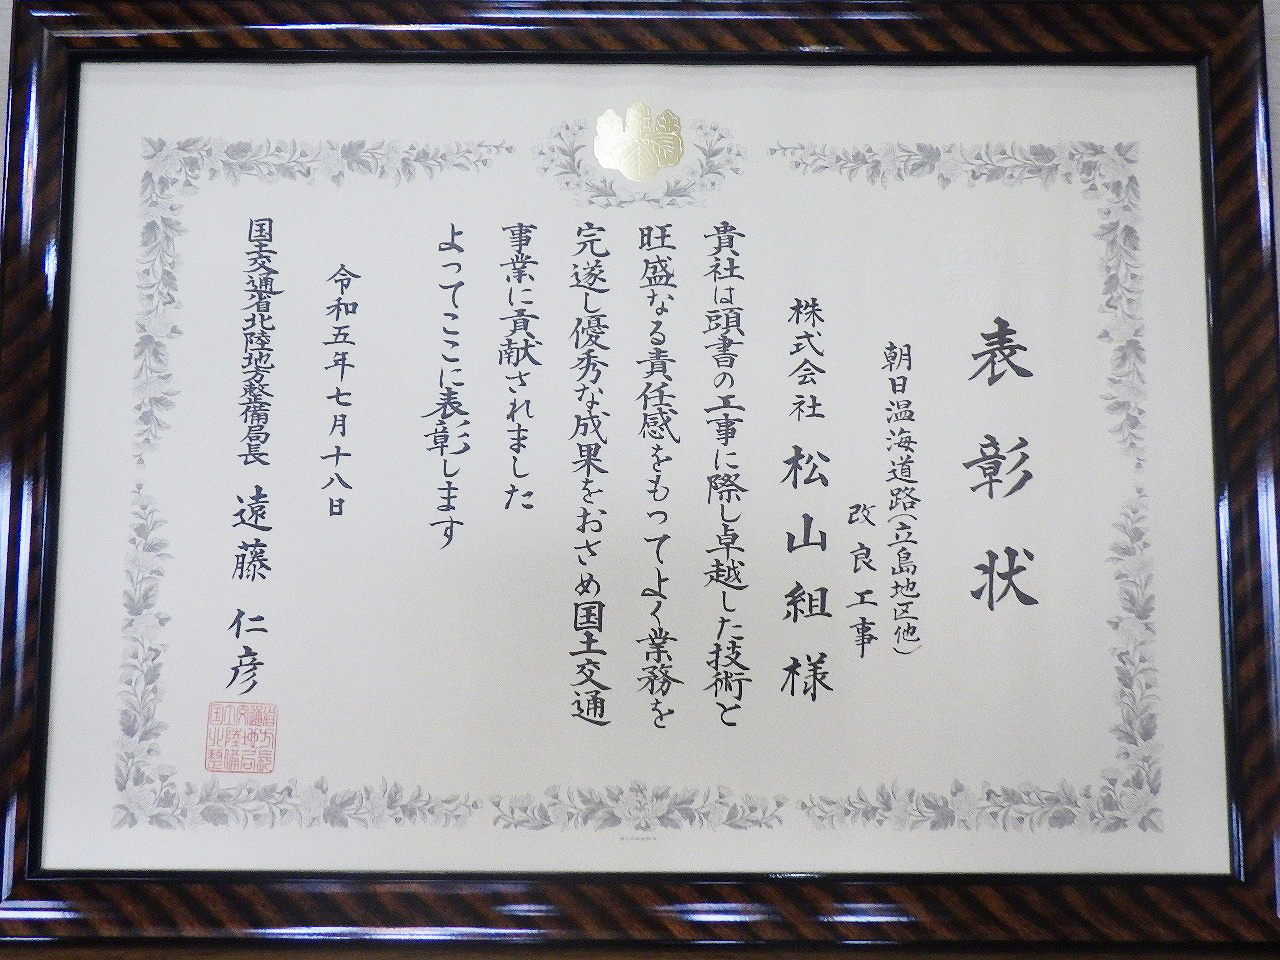 表彰状
朝日温海道路（立島地区他）
改良工事
株式会社 松山組 様
貴社は頭書の工事に際し卓越した技術と
旺盛なる責任感をもってよく業務を
完遂し優秀な成果をおさめ国土交通
事業に貢献されました
よってここに表彰します
令和五年七月十八日
国土交通省北陸地方整備局長 遠藤仁彦